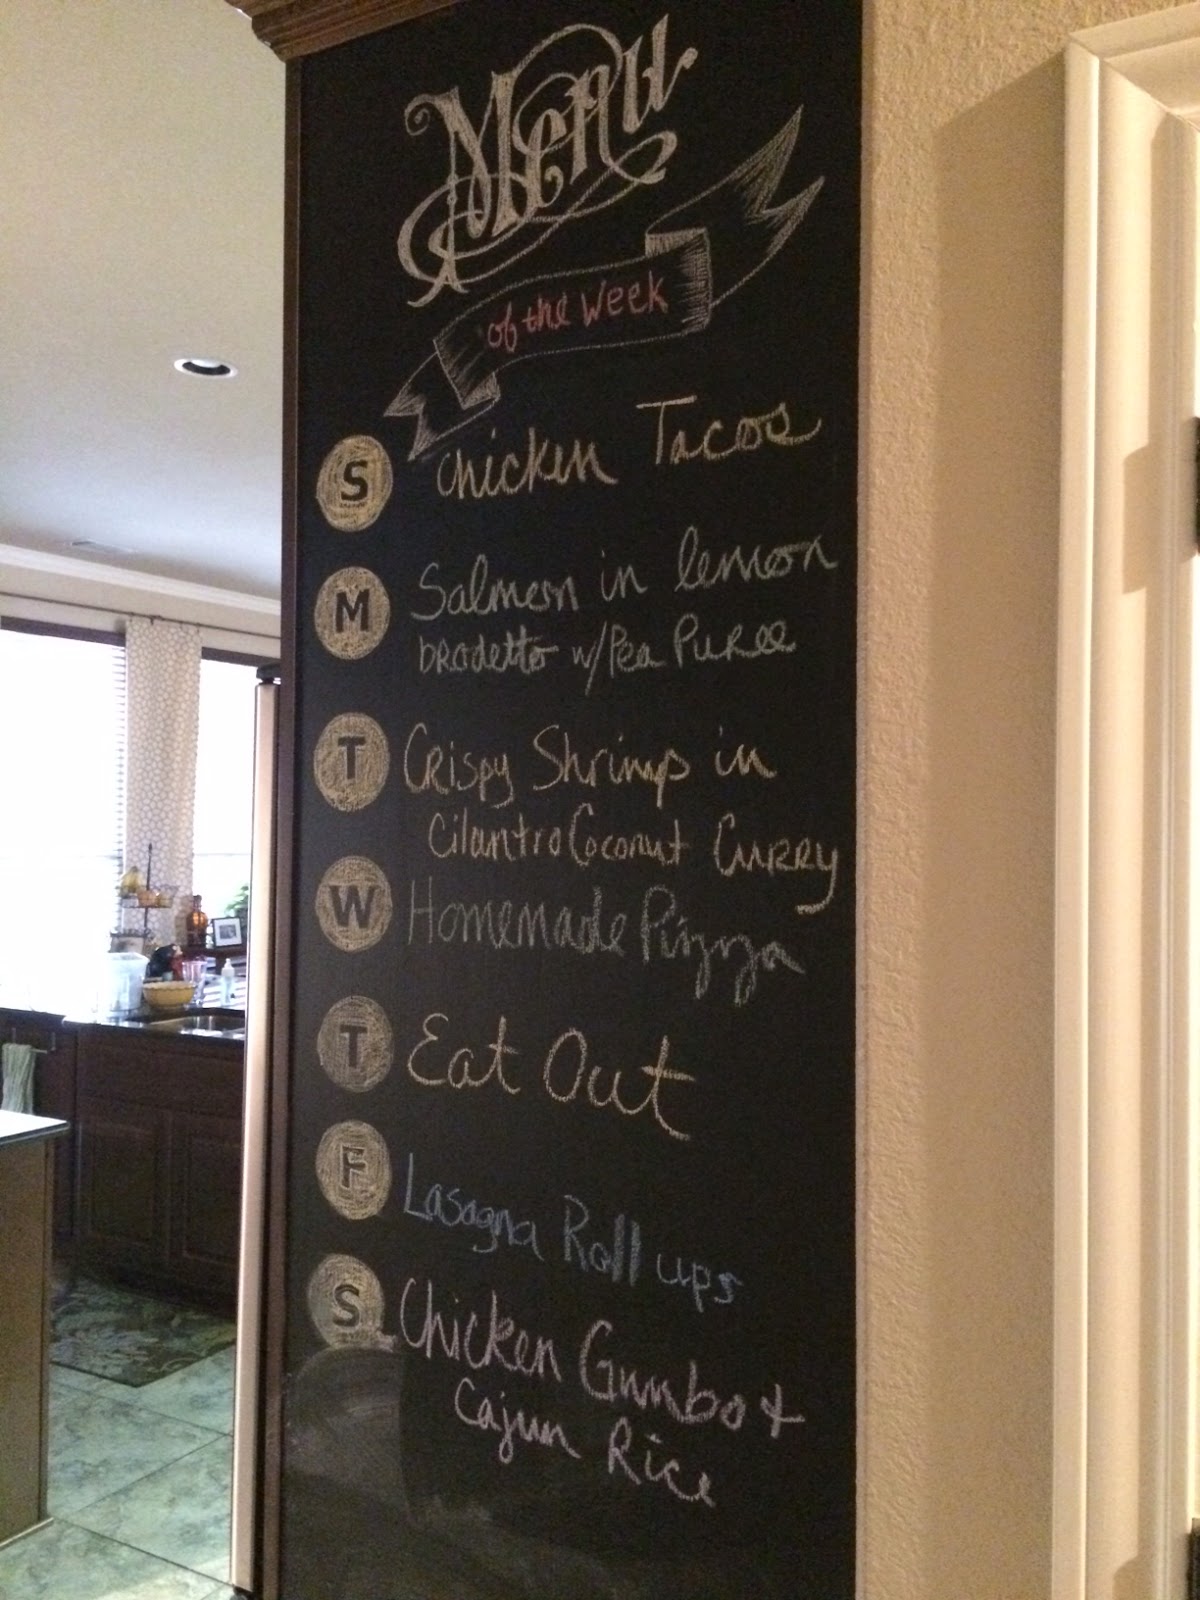 Menu
of the Week
S Chicken Tacos
M Salmon in lemon
brodetto w/Pea Puree
T Crispy Shrimp in
Cilantro Coconut Curry
W Homemade Pizza
T Eat Out
F Lasagna Roll ups
S Chicken Gumbo +
Cajun Rice